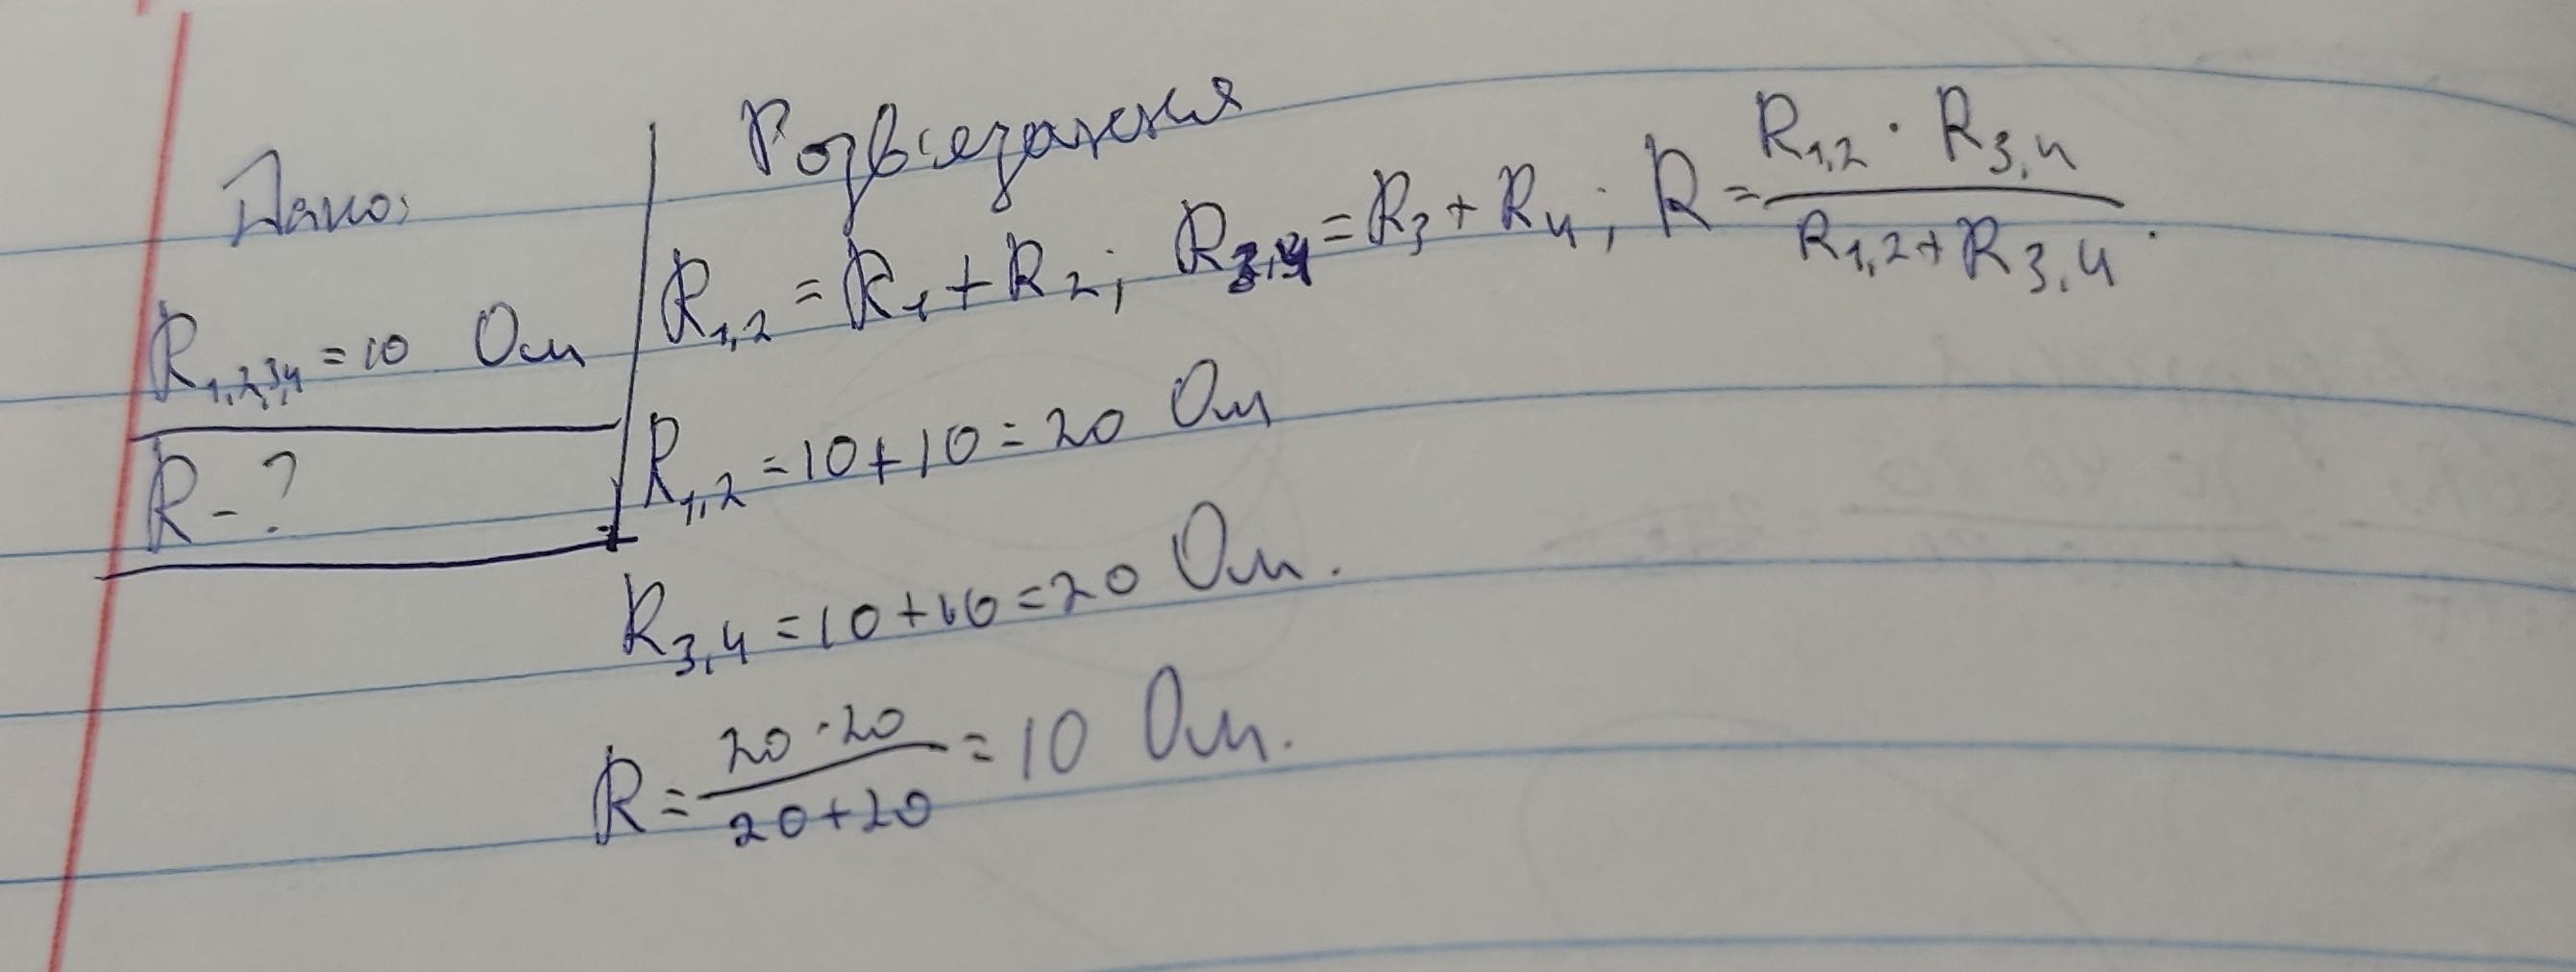 Дано:
R1,2,3,4 = 10 Ом
R - ?
Розв'язання
R1,2 = R1 + R2; R3,4 = R3 + R4; R = (R1,2 · R3,4) / (R1,2 + R3,4).
R1,2 = 10 + 10 = 20 Ом
R3,4 = 10 + 10 = 20 Ом.
R = (20 · 20) / (20 + 20) = 10 Ом.